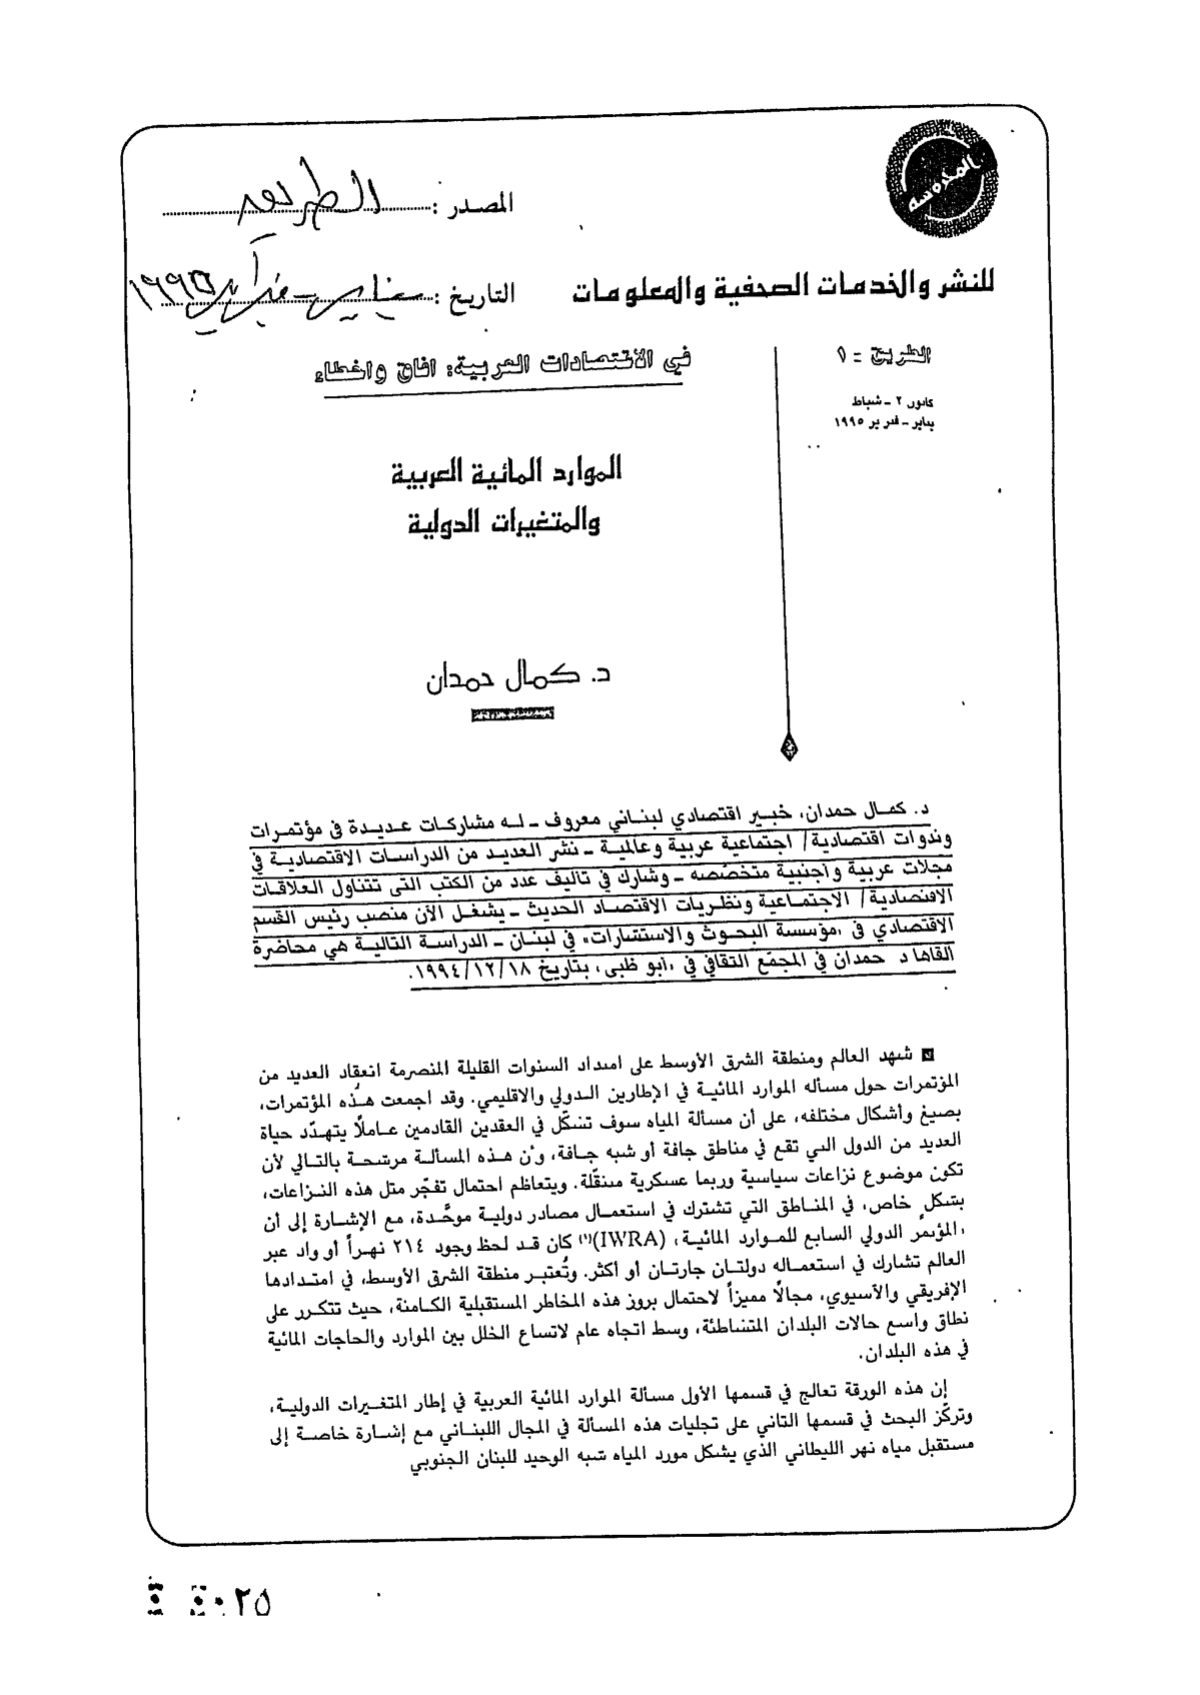 المدرسة
المصدر : الطريق
للنشر والخدمات الصحفية والمعلومات
التاريخ : يناير - فبراير ١٩٩٥
الطريق - ١
كانون ٢ - شباط
يناير - فبراير ١٩٩٥
في الاقتصادات العربية: افاق واخطاء
الموارد المائية العربية
والمتغيرات الدولية
د. كمال حمدان
د. كمال حمدان، خبير اقتصادي لبناني معروف - له مشاركات عديدة في مؤتمرات
وندوات اقتصادية/ اجتماعية عربية وعالمية - نشر العديد من الدراسات الاقتصادية في
مجلات عربية وأجنبية متخصصه - وشارك في تأليف عدد من الكتب التى تتناول العلاقات
الاقتصادية/ الاجتماعية ونظريات الاقتصاد الحديث - يشغل الآن منصب رئيس القسم
الاقتصادي في «مؤسسة البحوث والاستشارات» في لبنان - الدراسة التالية هي محاضرة
القاها د حمدان في المجمع الثقافي في «أبو ظبى» بتاريخ ١٩٩٤/١٢/١٨.
شهد العالم ومنطقة الشرق الأوسط على امتداد السنوات القليلة المنصرمة انعقاد العديد من
المؤتمرات حول مسأله الموارد المائية في الإطارين الدولي والاقليمي. وقد اجمعت هذه المؤتمرات،
بصيغ وأشكال مختلفه، على أن مسألة المياه سوف تشكّل في العقدين القادمين عاملاً يتهدّد حياة
العديد من الدول التي تقع في مناطق جافة أو شبه جافة، وأن هذه المسألة مرشحة بالتالي لأن
تكون موضوع نزاعات سياسية وربما عسكرية متنقّلة. ويتعاظم احتمال تفجّر مثل هذه النزاعات،
بشكل خاص، في المناطق التي تشترك في استعمال مصادر دولية موحَّدة، مع الإشارة إلى أن
«المؤتمر الدولي السابع للموارد المائية» (IWRA)⁽¹⁾ كان قد لحظ وجود ٢١٤ نهراً أو واد عبر
العالم تشارك في استعماله دولتان جارتان أو أكثر. وتُعتبر منطقة الشرق الأوسط، في امتدادها
الإفريقي والآسيوي، مجالاً مميزاً لاحتمال بروز هذه المخاطر المستقبلية الكامنة، حيث تتكرر على
نطاق واسع حالات البلدان المتشاطئة، وسط اتجاه عام لاتساع الخلل بين الموارد والحاجات المائية
في هذه البلدان.
إن هذه الورقة تعالج في قسمها الأول مسألة الموارد المائية العربية في إطار المتغيرات الدولية،
وتركّز البحث في قسمها الثاني على تجليات هذه المسألة في المجال اللبناني مع إشارة خاصة إلى
مستقبل مياه نهر الليطاني الذي يشكل مورد المياه شبه الوحيد للبنان الجنوبي